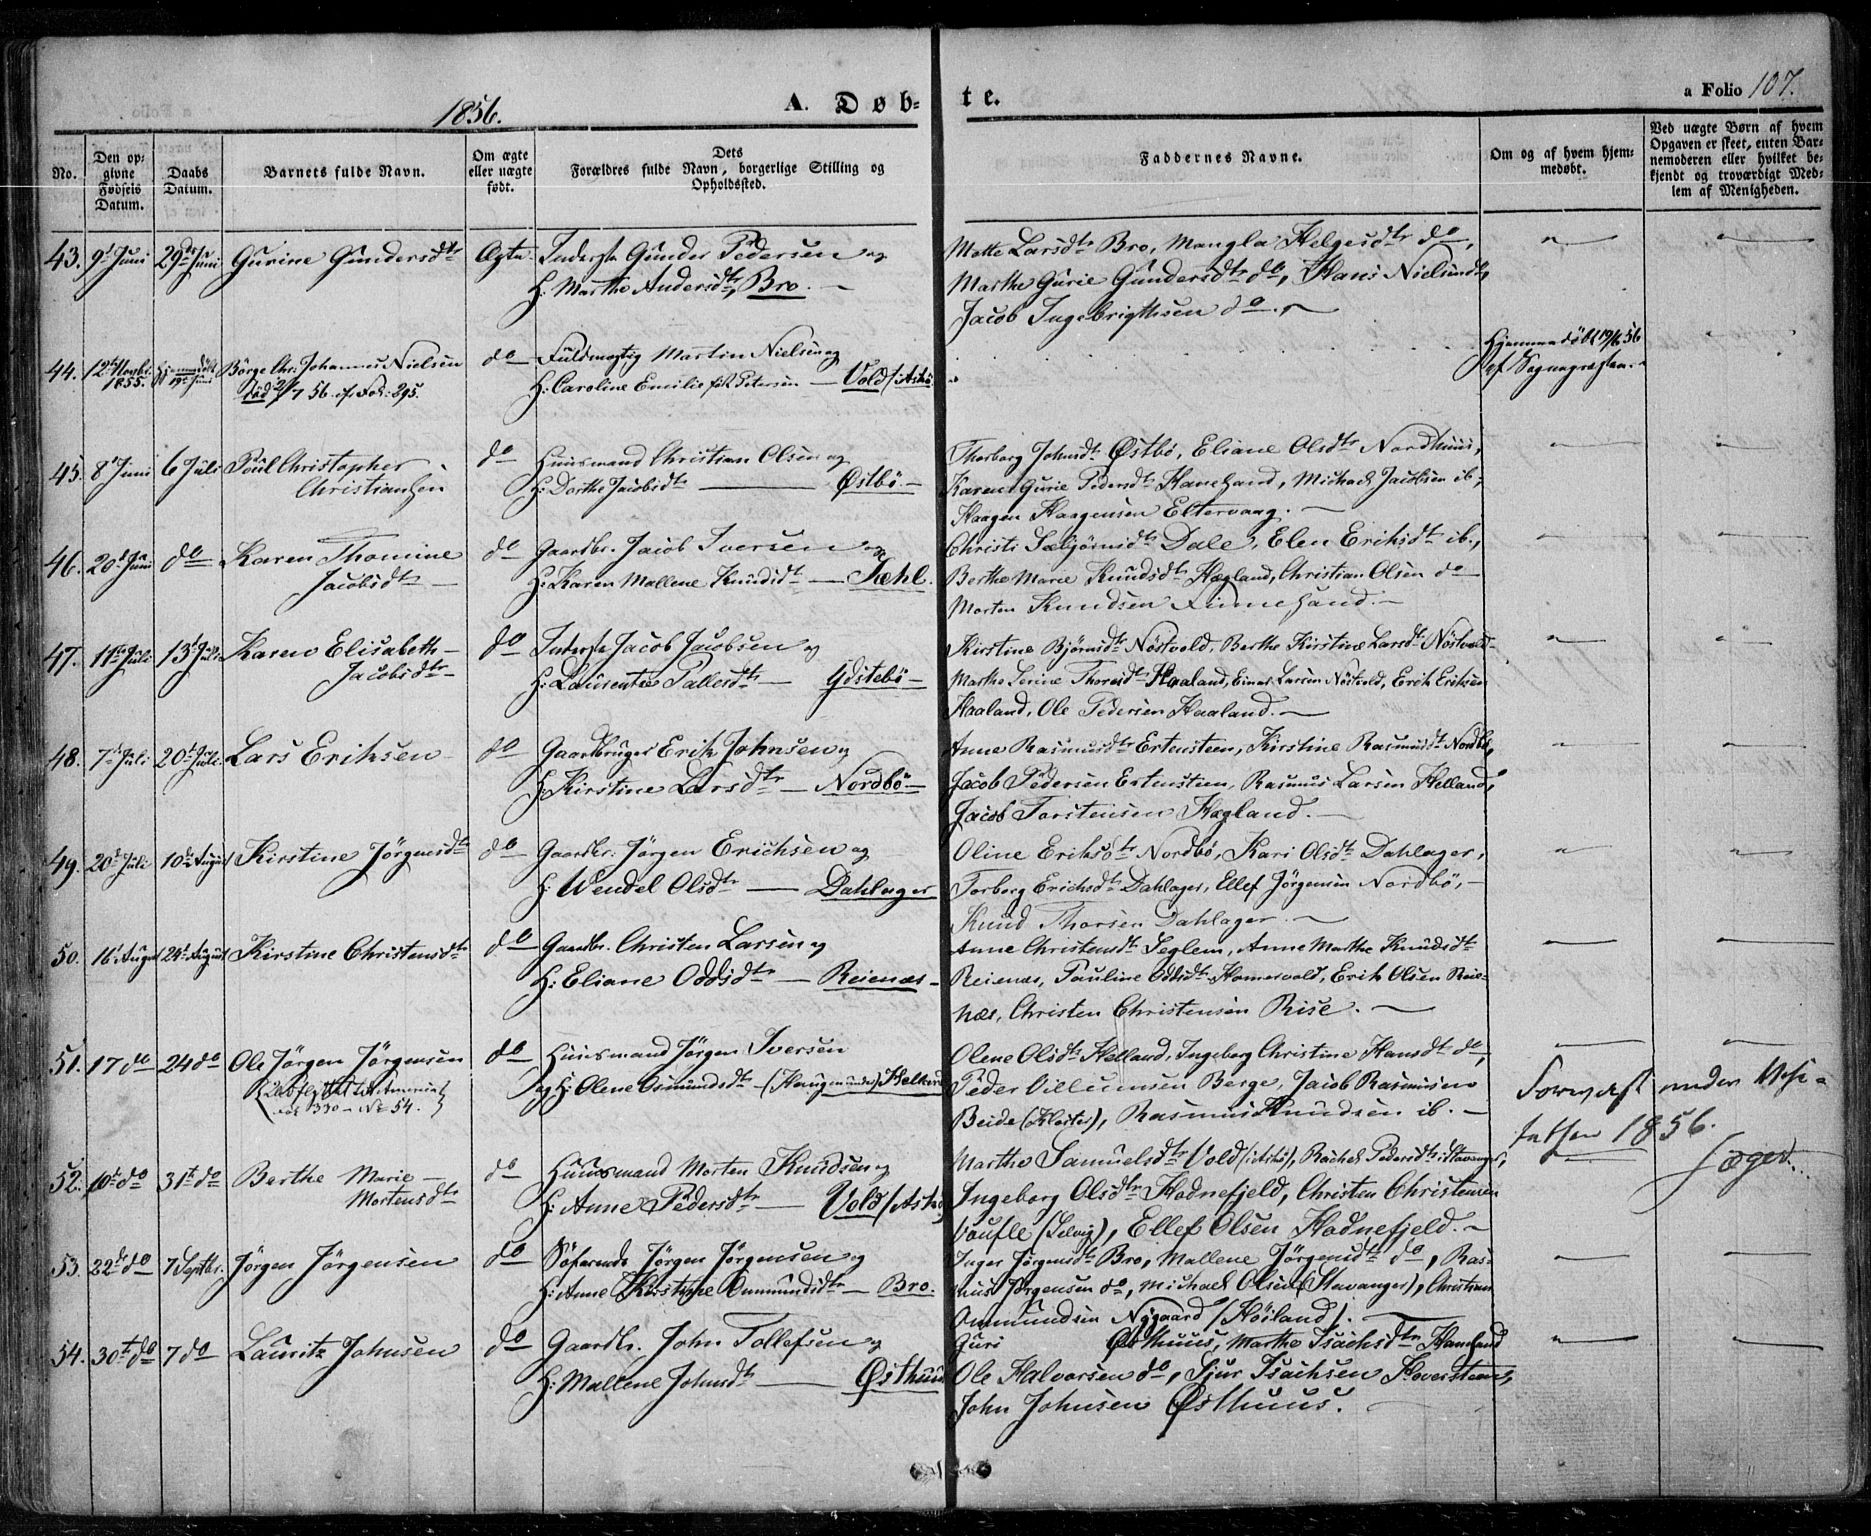 1856.
A. Døb-
te.
a Folio 107.
No.
Den op-
givne
Fødsels
Datum.
Daabs
Datum.
Barnets fulde Navn.
Om ægte
eller uægte
født.
Dets
Forældres fulde Navn, borgerlige Stilling og
Opholdssted.
Faddernes Navne.
Om og af hvem hjem-
medøbt.
Ved uægte Børn af hvem
Opgaven er skeet, enten Bar-
nemoderen eller hvilket be-
kjendt og troværdigt Med-
lem af Menigheden.
43. 9d Juni 29de Juni Gurine Gundersdtr Ægte Inderst Gunder Pedersen og
H: Marthe Andersdtr, Bro. —
Mette Larsdtr Bro, Mangla Helgesdtr do,
Marthe Gurie Gundersdtr do, Hans Nielsen do,
Jacob Ingebrigthsen do. —
44. 12te Novbr 1855. Hjemmedöbt 19de Juni Börge Chr. Johannes Nielsen do Fuldmægtig Martin Nielsen og
död 2/7 56 cfr Fol: 295.
H: Caroline Emilie föd Petersen — Vold/: Askö
Hjemmedöbt 19/6 56
af Sognepræsten.
45. 8d Juni 6 Juli Poul Christopher do Huusmand Christian Olsen og
Christiansen
H: Dorthe Jacobsdtr — Østbö. —
Thorborg Johnsdtr Østbö, Eliane Olsdtr Nordhuus,
Karen Gurie Pedersdtr Hanesand, Michael Jacobsen ib.,
Haagen Haagensen Eltervaag. —
46. 20d Juni do Karen Thomine do Gaardbr. Jacob Iversen og
Jacobsdtr —
H: Karen Mallene Knudsdtr — Fæhl.
Christi Sæbjörnsdtr Dale, Elen Eriksdtr ib.,
Berthe Marie Knudsdtr Hægland, Christian Olsen do
Morten Knudsen Finnesand. —
47. 11te Juli 13d Juli Karen Elisabeth — do Inderst Jacob Jacobsen og
Jacobsdtr —
H: Laurentse Pallesdtr — Ydstebö —
Kirstine Björnsdtr Nöstvold, Berthe Kirstine Larsdtr Nöstvold
Marthe Serine Thoresdtr Haaland, Einar Larsen Nöstvold, Erik Eriksen
Haaland, Ole Pedersen Haaland. —
48. 7d Juli 20d Juli Lars Eriksen do Gaardbruger Erik Johnsen og
H: Kirstine Larsdtr — Nordbö —
Anne Rasmusdtr Ertensteen, Kirstine Rasmusdtr Nordbö,
Jacob Pedersen Ertensteen, Rasmus Larsen Helland,
Jacob Torstensen Hægland. —
49. 20d Juli 10de August Kirstine Jörgensdtr do Gaardbr. Jörgen Erichsen og
H: Wendel Olsdtr — Dahlager
Oline Eriksdtr Nordbö, Kari Olsdtr Dahlager,
Torborg Erichsdtr Dahlager, Ellef Jörgensen Nordbö, —
Knud Thorsen Dahlager —
50. 16d August 24d August Kirstine Christensdtr do Gaardbr. Christen Larsen og
H: Eliane Oddsdtr — Reienæs —
Anne Christensdtr Seglem, Anne Marthe Knudsdtr
Reienæs, Pauline Oddsdtr Hamersvold, Erik Olsen Reie-
næs, Christen Christensen Rise. —
51. 17 do 24 do Ole Jörgen Jörgensen do Huusmand Jörgen Iversen
og H: Olene Osmundsdtr — (Haugen under) Helland
Udflyttet til Amerika
Fol 330 — No 54.
Olene Olsdtr Helland, Ingeborg Christine Hansdtr do,
Peder Villumsen Berge, Jacob Rasmusen
Beide (Kloster), Rasmus Knudsen ib. —
Forevist under Visi-
tatsen 1856.
Jæger.
52. 10d do 31te do Berthe Marie — do Huusmand Morten Knudsen og
Mortensdtr
H: Anne Pedersdtr — Vold/: Askö
Marthe Samuelsdtr Vold (i Askö), Rachel Pedersdtr i Stavanger,
Ingeborg Olsdtr Hodnefjeld, Christen Christensen
Voufle (Selvig), Ellef Olsen Hodnefjeld. —
53. 22de do 7 Septbr. Jörgen Jörgensen do Söfarende Jörgen Jörgensen og
H: Anne Kirstine Ommundsdtr — Bro.
Inger Jörgensdtr Bro, Mallene Jörgensdtr do, Ras-
mus Jörgensen do, Michael Olsen (Stavanger), Christian
Ommundsen Nygaard (Höiland). —
54. 30te do 7 do Lauritz Johnsen do Gaardbr. John Tollefsen og
H: Mallene Johnsdtr — Østhuus
Guri Østhuus, Marthe Isachsdtr Hanesand
Ole Halvorsen do, Sjur Isachsen Hoversteen,
John Johnsen Østhuus. —